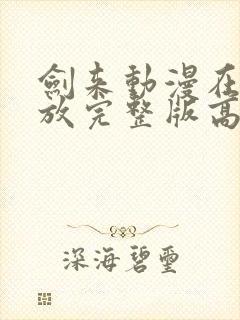 劍来動漫在
放完整版高
深海碧璽